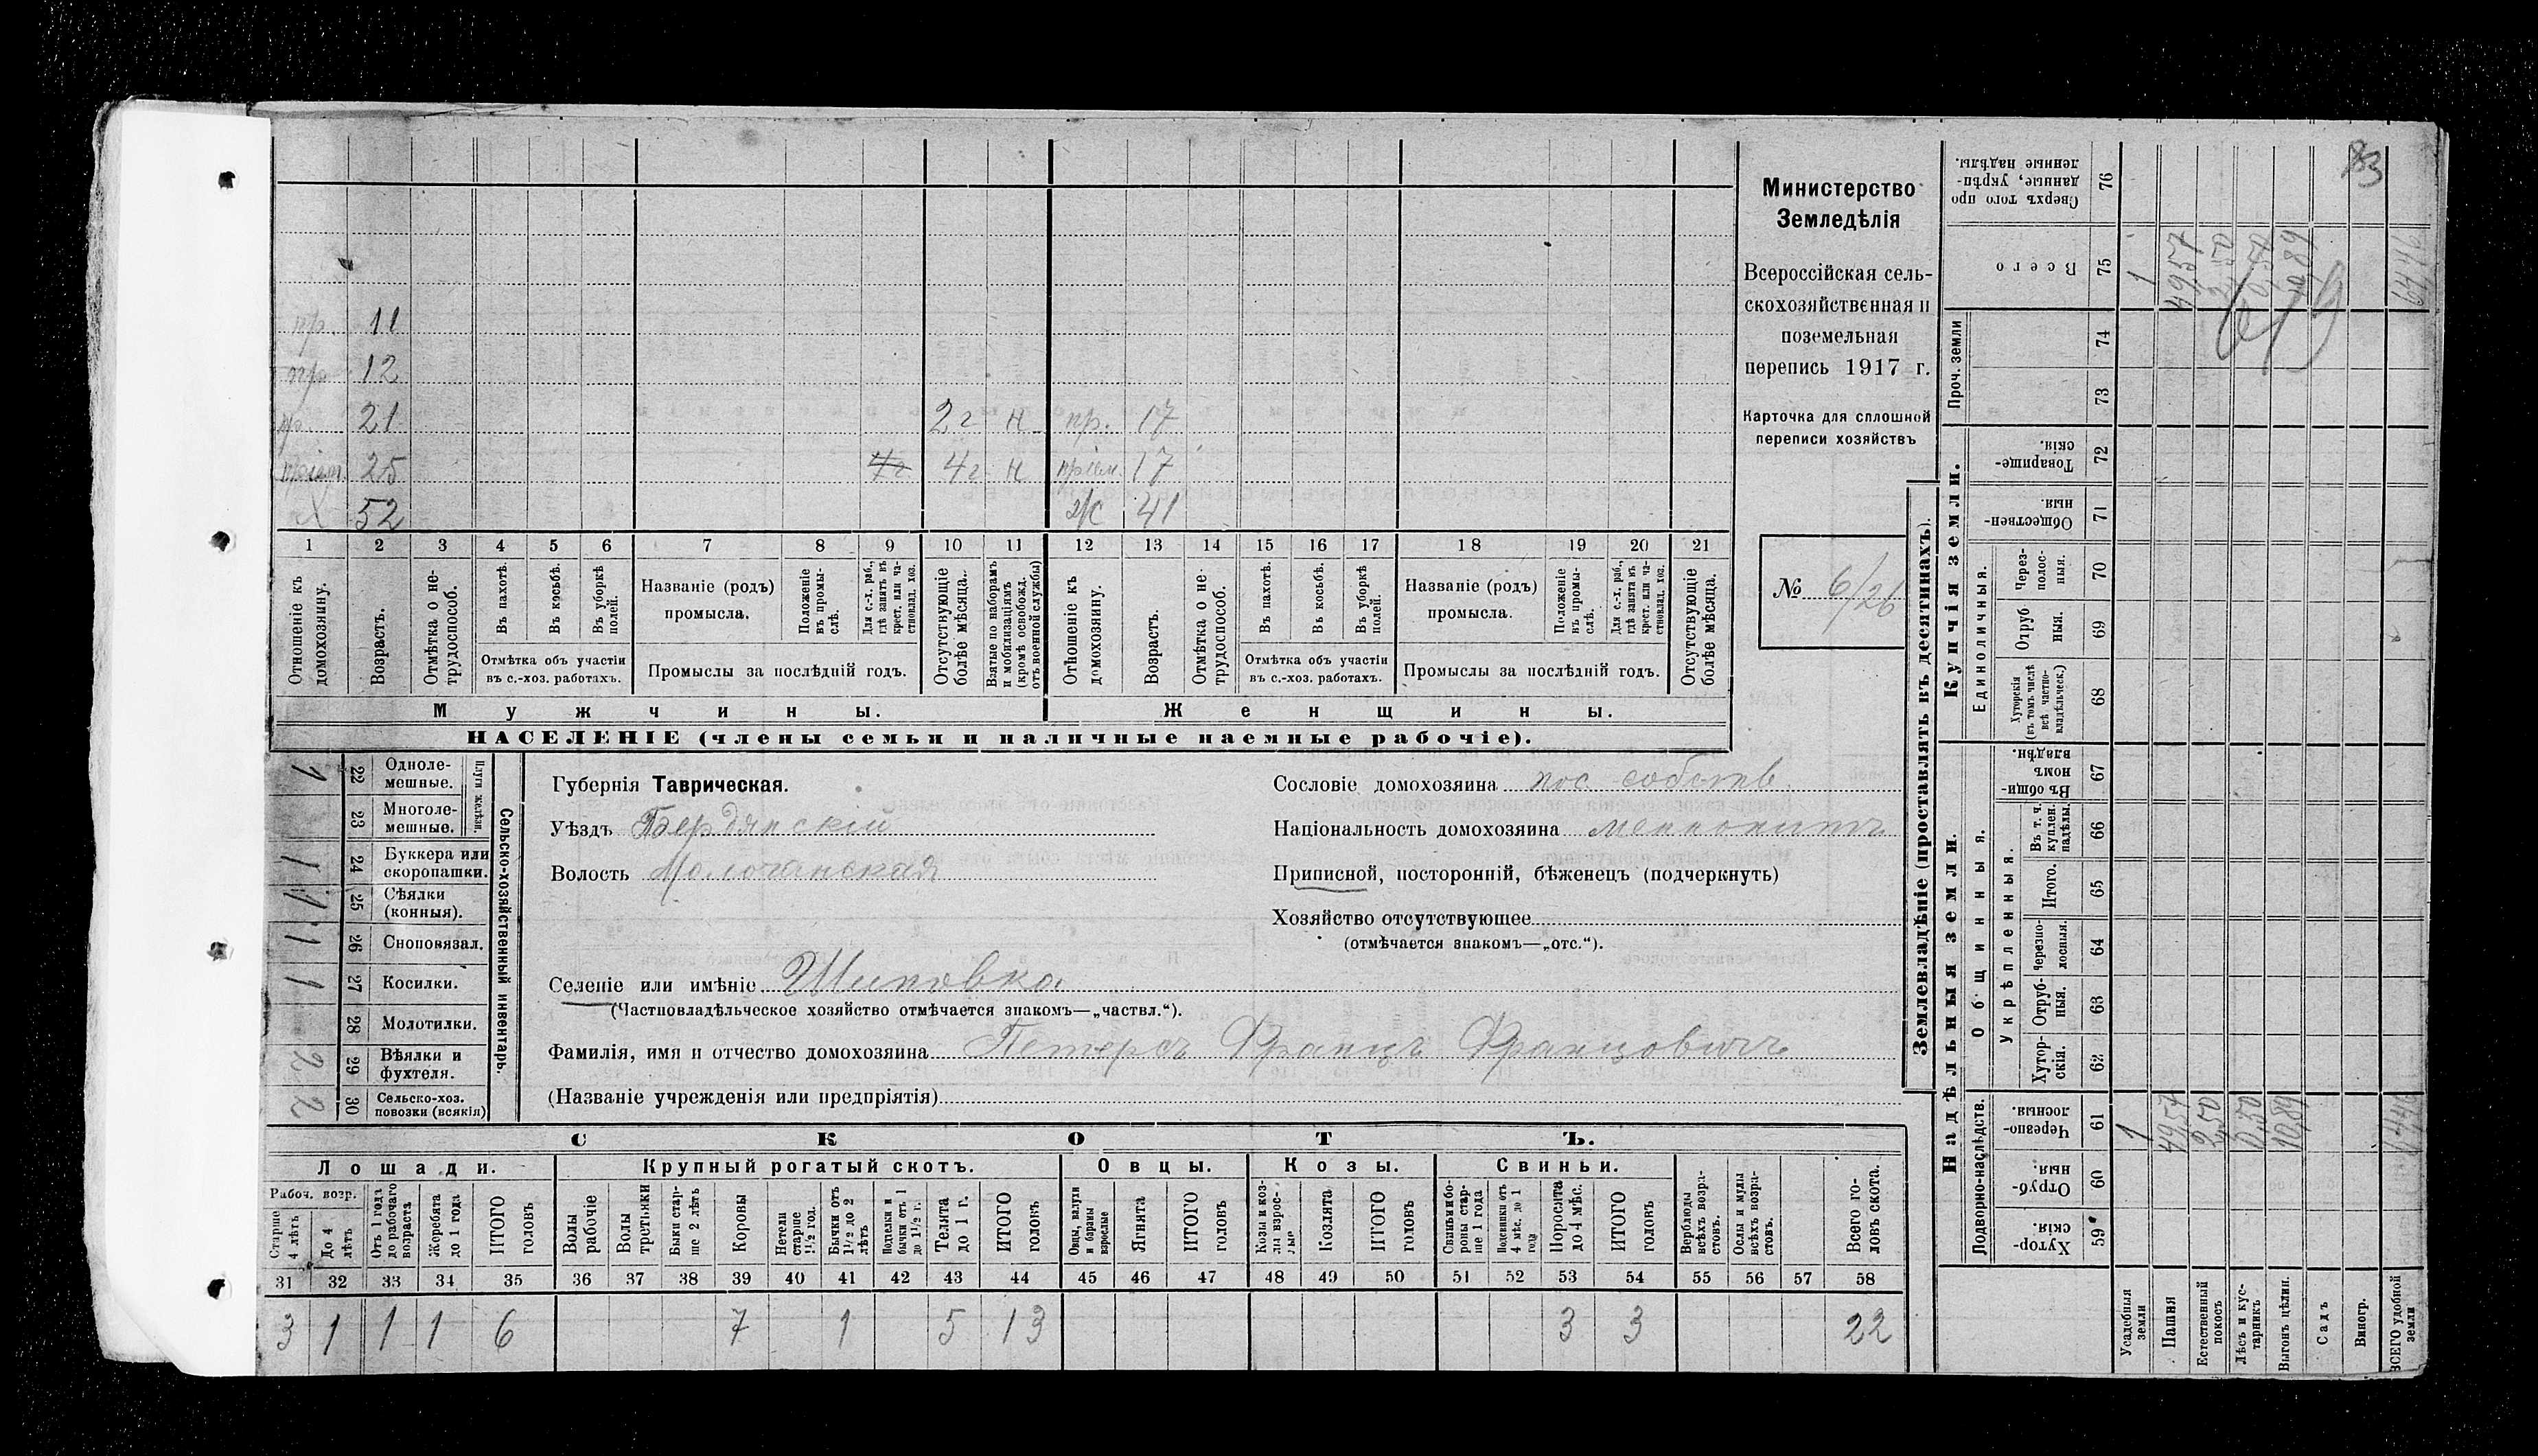 83
Министерство
Земледѣлія
Всероссійская сель-
скохозяйственная и
поземельная
перепись 1917 г.
Карточка для сплошной
переписи хозяйствъ
№ 6/26
пр. 11
пр. 12
пр. 21 2 г н пр. 17
пріем. 25 4 г. 4 г н пріем. 17
х 52 х/с 41
1 2 3 4 5 6 7 8 9 10 11 12 13 14 15 16 17 18 19 20 21
Отношеніе къ домохозяину.
Возрастъ.
Отмѣтка о не-трудоспособ.
Въ пахотѣ.
Въ косьбѣ.
Въ уборкѣ полей.
Отмѣтка объ участіи въ с.-хоз. работахъ.
Названіе (родъ) промысла.
Положеніе въ промы-слѣ.
Для с.-х. раб., гдѣ занятъ въ крест. или ча-стновлад. хоз.
Промыслы за послѣдній годъ.
Отсутствующіе болѣе мѣсяца.
Взятые по наборамъ и мобилизаціямъ (кромѣ освобожд. отъ военной службы)
Отношеніе къ домохозяину.
Возрастъ.
Отмѣтка о не-трудоспособ.
Въ пахотѣ.
Въ косьбѣ.
Въ уборкѣ полей.
Отмѣтка объ участіи въ с.-хоз. работахъ.
Названіе (родъ) промысла.
Положеніе въ промы-слѣ.
Для с.-х. раб., гдѣ занята въ крест. или ча-стновлад. хоз.
Промыслы за послѣдній годъ.
Отсутствующіе болѣе мѣсяца.
Мужчины. Женщины.
НАСЕЛЕНІЕ (члены семьи и наличные наемные рабочіе).
Сельско-хозяйственный инвентарь.
Плуги желѣзн.
1 22 Одноле-мешные.
23 Многоле-мешные.
1 24 Буккера или скоропашки.
1 25 Сѣялки (конныя).
1 26 Сноповязал.
1 27 Косилки.
28 Молотилки.
2 29 Вѣялки и фухтеля.
2 30 Сельско-хоз. повозки (всякія)
Губернія Таврическая.
Уѣздъ Бердянскій
Волость Молочанская
Сословіе домохозяина пос. собств.
Національность домохозяина меннонитъ
Приписной, посторонній, бѣженецъ (подчеркнуть)
Хозяйство отсутствующее
(отмѣчается знакомъ—„отс.“).
Селеніе или имѣніе Шиповка
(Частновладѣльческое хозяйство отмѣчается знакомъ—„частвл.“).
Фамилія, имя и отчество домохозяина Петерсъ Францъ Францовичъ
(Названіе учрежденія или предпріятія)
СКОТЪ.
Лошади. Крупный рогатый скотъ. Овцы. Козы. Свиньи.
Рабоч. возр.
Старше 4 лѣтъ
До 4 лѣтъ
Отъ 1 года до рабочаго возраста
Жеребята до 1 года
ИТОГО головъ
Волы рабочіе
Волы третьяки
Быки стар-ше 2 лѣтъ
Коровы
Нетели старше 1½ год.
Бычки отъ 1½ до 2 лѣтъ
Подтелки и бычки отъ 1 до 1½ г.
Телята до 1 г.
ИТОГО головъ
Овцы, валухи и бараны взрослые
Ягнята
ИТОГО головъ
Козы и коз-лы взрос-лые
Козлята
ИТОГО головъ
Свиньи и бо-ровы стар-ше 1 года
Подсвинки отъ 4 мѣс. до 1 года
Поросята до 4 мѣс.
ИТОГО головъ
Верблюды всѣхъ возра-стовъ.
Ослы и мулы всѣхъ возра-стовъ.
Всего го-ловъ скота.
31 32 33 34 35 36 37 38 39 40 41 42 43 44 45 46 47 48 49 50 51 52 53 54 55 56 57 58
3 1 1 1 6 7 1 5 13 3 3 22
Землевладѣніе (проставлять въ десятинахъ).
Купчія земли.
Надѣльныя земли.
Сверхъ того про данные, укрѣп-ленные надѣлы. 76
Всего 75 1 49,57 2,50 0,50 10,89
Проч. земли 74 73
Товарище-скія. 72
Обществен-ныя. 71
Единоличныя.
Через-полос-ныя. 70
Отруб ныя. 69
Хуторскія (въ томъ числѣ всѣ частно-владѣльческ.) 68
Общинныя.
Въ общи-номъ владѣн. 67
Укрѣпленныя.
Въ т. ч. куплен. надѣлы. 66
Итого. 65
Черезпо-лосныя. 64
Отруб-ныя. 63
Хутор-скія. 62
Подворно-наслѣдств.
Черезпо-лосныя. 61 1 49,57 2,50 0,50 10,89
Отруб-ныя. 60
Хутор-скія. 59
Усадебныя земли
Пашня
Естественный покосъ
Лѣсъ и кус-тарникъ
Выгонъ цѣлин.
Садъ
Виногр.
ВСЕГО удобной земли